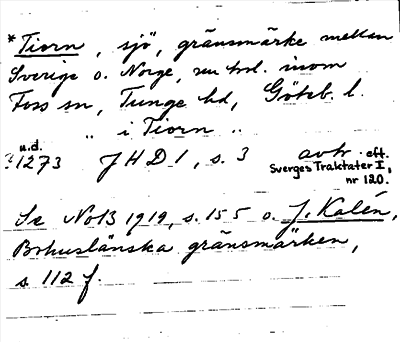 *Tiorn, sjö, gränsmärke mellan
Sverige o. Norge, nu trol. inom
Foss sn, Tunge hd, Göteb. l.
„ i Tiorn „
u.d.
1273 JHD 1, s. 3 avtr. eft.
Sverges Traktater I,
nr 120.
Se NoB 1919, s. 155 o. J. Kalén,
Bohuslänska gränsmärken,
s. 112 f.